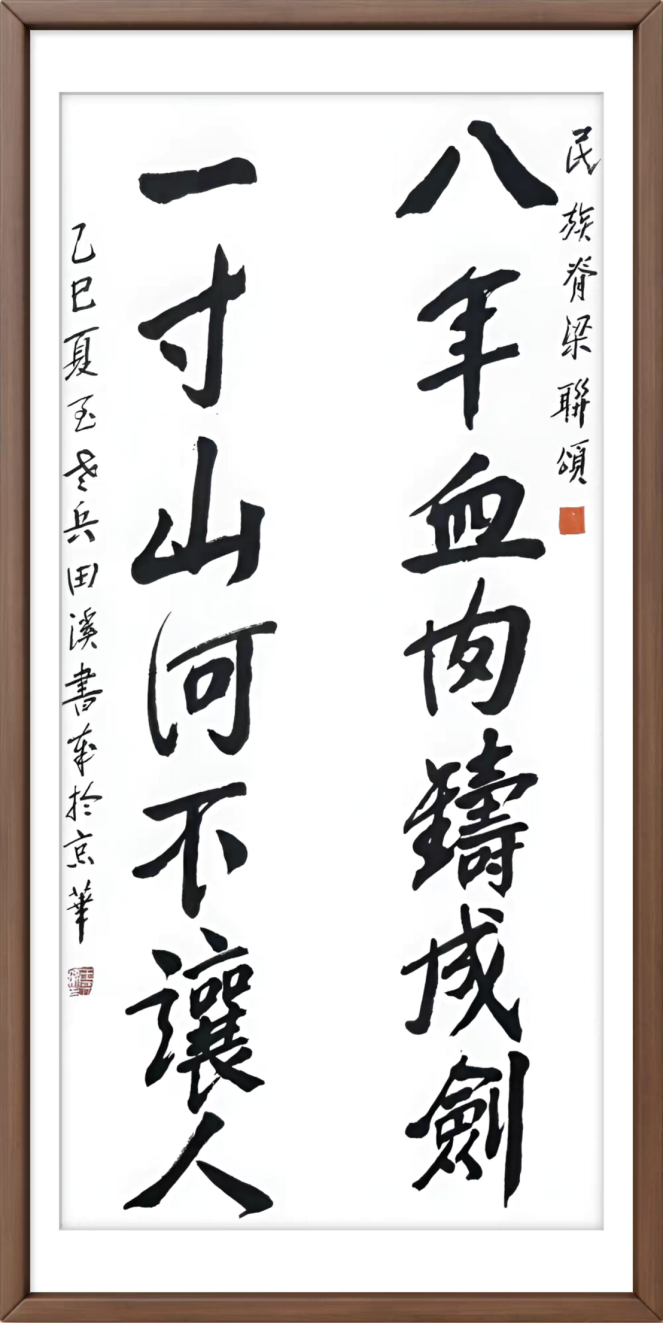 民族脊梁聯頌
八年血肉鑄成劍
一寸山河不讓人
乙巳夏至老兵田溪書奉於京華